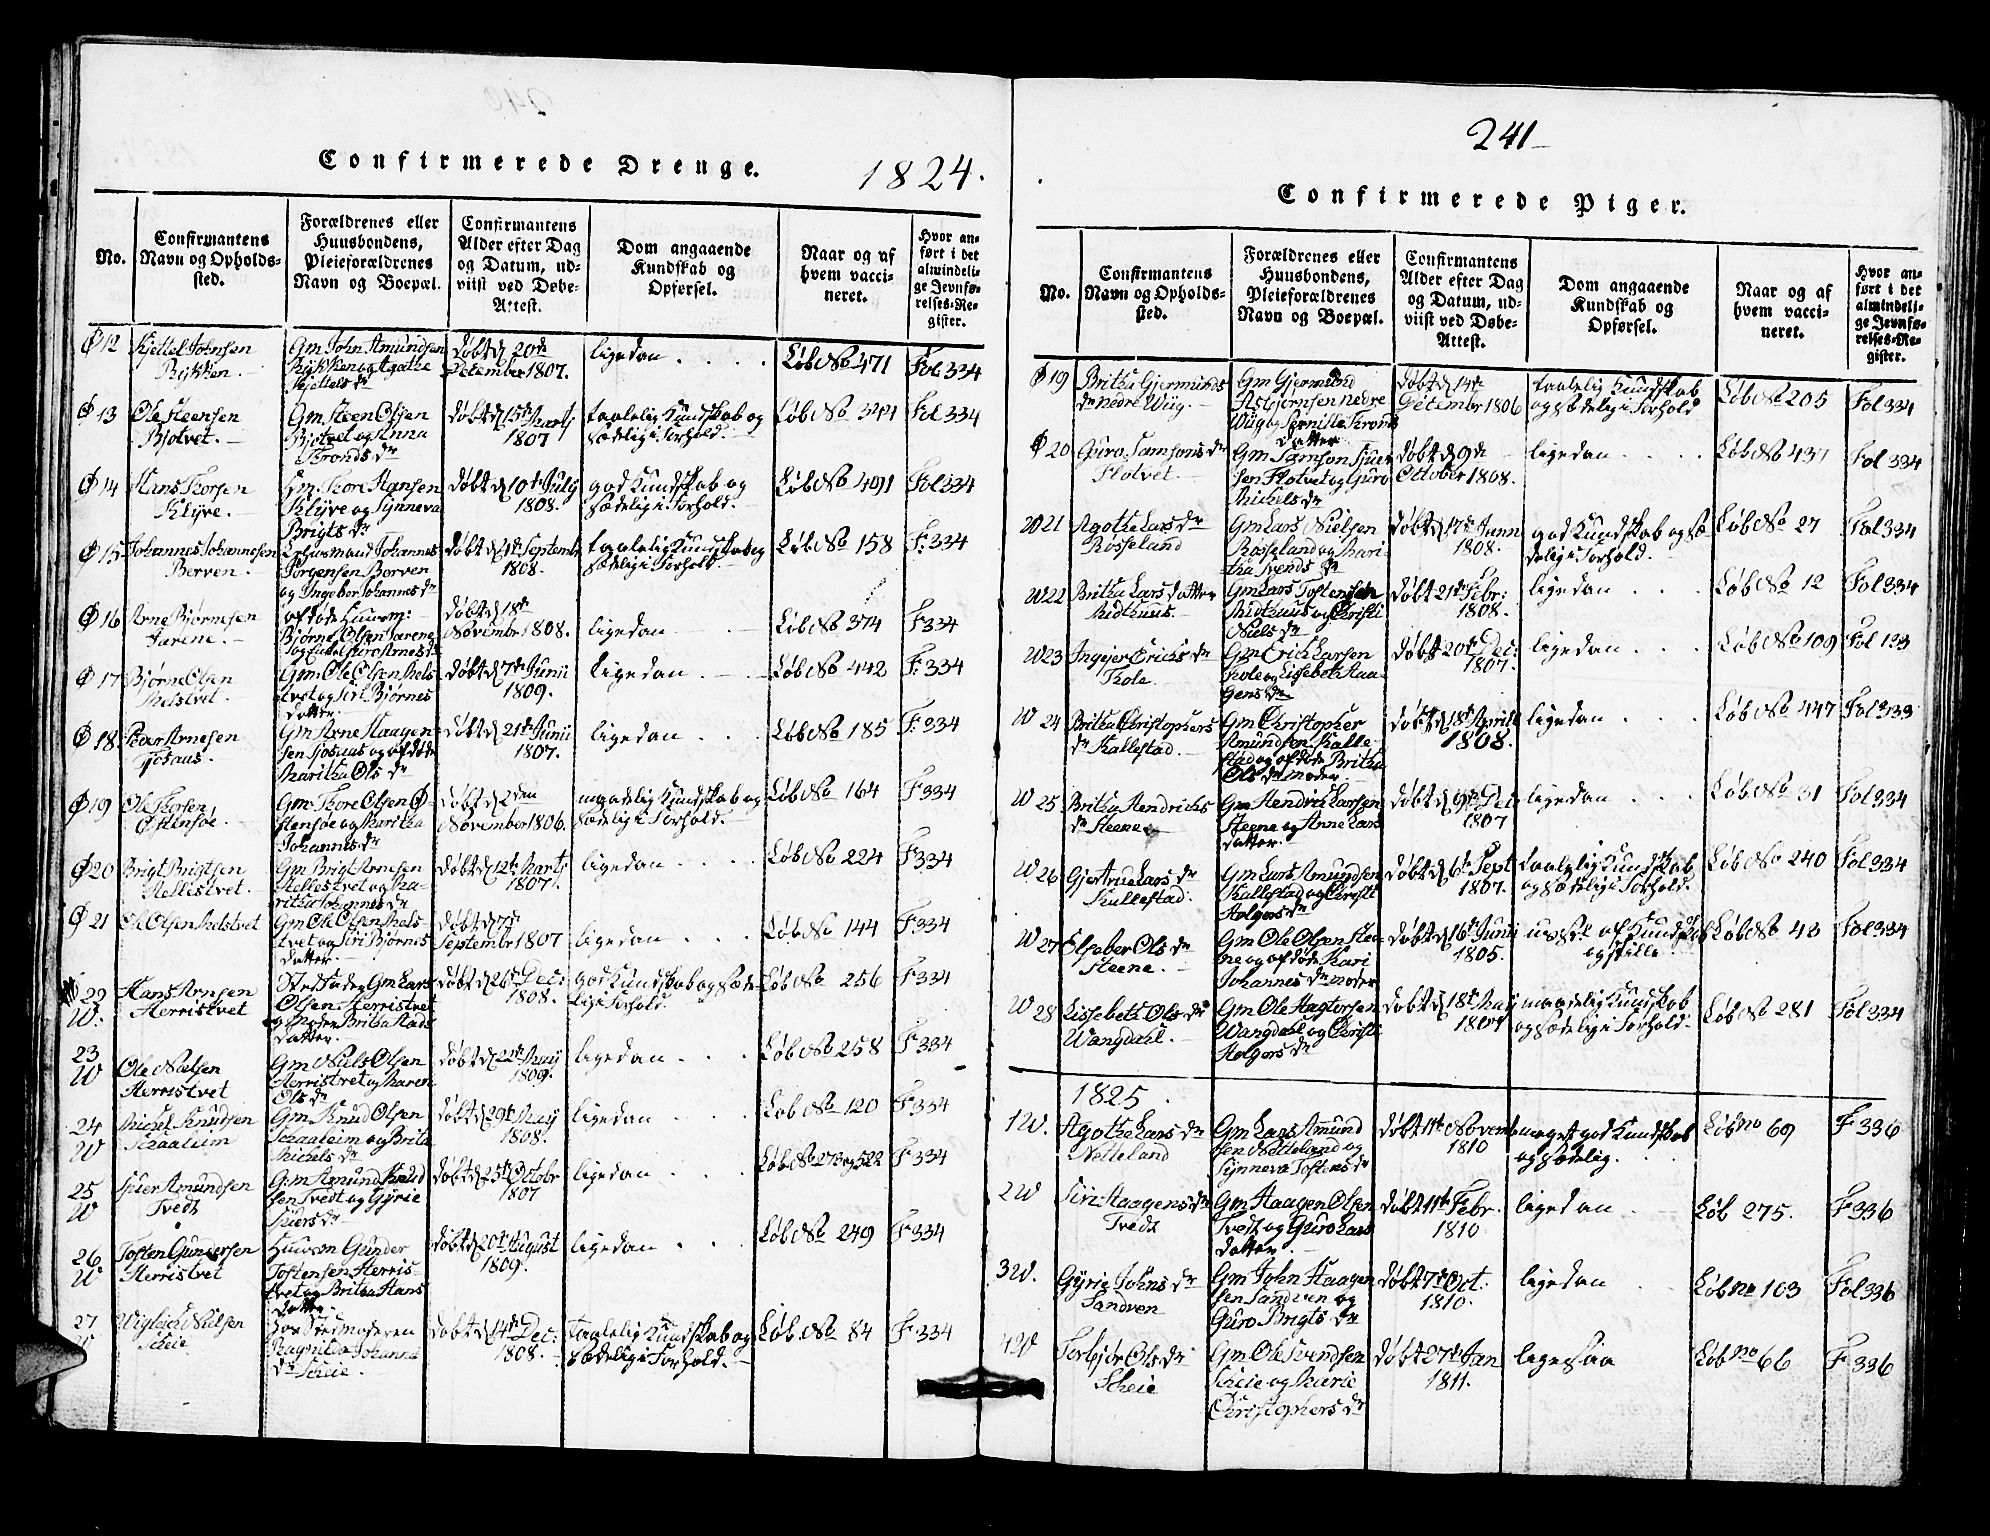 Confirmerede Drenge. 1824.
No.
Confirmantens
Navn og Opholds-
sted.
Forældrenes eller
Huusbondens,
Pleieforældrenes
Navn og Boepæl.
Confirmantens
Alder efter Dag
og Datum, ud-
viist ved Døbe-
Attest.
Dom angaaende
Kundskab og
Opførsel.
Naar og af
hvem vacci-
neret.
Hvor an-
ført i det
almindeli-
ge Jevnfø-
relses-Re-
gister.
Ø 12
Kjettel Johnsen
Rykken.
Gm John Amundsen
Rykken og Agathe
Kjettels dr
døbt d 20de
December 1807.
ligedan
Løb No 471
Fol 334
Ø 13
Ole Steensen
Bjotvet.
Gm Steen Olsen
Bjotvet og Anna
Tronds dr
døbt d 15de Martj
1807
taalelig Kundskab og
sædelig i Forhold.
Løb No
Fol 334
Ø 14
Hans Thorsen
Klyve.
Gm Thore Hansen
Klyve og Synneva
Brigts dr
døbt d 10de July
1808.
god Kundskab og
sædelig i Forhold.
Løb No 491
Fol 334
Ø 15
Johannes Johannesen
Berven.
Johannes
Jørgensen Berven
og Ingebor Johannes dr
døbt d Septembr
1808.
taalelig Kundskab og
sædelig i Forhold.
Løb No 158
F: 334
Ø 16
Arne Bjørnsen
Jarene.
afdøde Huusm:
Bjørne Olsen Jarene
og Arnes dr
døbt d 18de
November 1808.
ligedan
Løb No 374
F 334
Ø 17
Bjørne Olsen
Melstvet.
Gm Ole Olsen Mels
tvet og Siri Bjørnes
datter
døbt d 7de Junii
1809.
ligedan
Løb No 442
F: 334
Ø 18
Peder Arnesen
Tjosaus.
Gm Arne Haagen
sen Tjosaus og afdøde
Maritha Ols dr
døbt d 21de Junii
1807.
ligedan
Løb No 185
F: 334
Ø 19
Ole Thorsen
Østensøe.
Gm Thore Olsen Ø-
stensøe og Maritha
Johannes dr
døbt d 2den
November 1806.
maadelig Kundskab og
sædelig i Forhold.
Løb No 164
F 334
Ø 20
Brigt Brigtsen
Stellestvet.
Gm Brigt Arnesen
Stellestvet og Ma-
ritha Johannes dr
døbt d 12te Martj
1807.
ligedan
Løb No 224
F 334
Ø 21
Ole Olsen Melstvet
Gm Ole Olsen Mels
tvet og Siri Bjørnes
datter.
døbt d 7de
September 1807
ligedan
Løb No 144
F 334
22
W.
Hans Arnsen
Herristvet
Stedfader Gm Lars
Olsen Herristvet
og Moder Britha Mads
datter.
døbt d 26de Dec:
1808.
god Kundskab og sæde-
lig i Forhold.
Løb No 256
F 334
23
W
Ole Nielsen
Herristvet
Gm Niels Olsen
Herristvet og Maren
Ols dr
døbt d May
1809.
ligedan
Løb No 258
F 334
24
W
Michel Knudsen
Schaaleim
Gm Knud Olsen
Schaaleim og Brita
Michels dr
døbt d 29de May
1808.
ligedan
Løb No 120
F 334
25
W
Sjuer Amundsen
Tvedt
Gm Amund Knud
sen Tvedt og Gyrie
Siuers dr
døbt d 25de Octobr
1807
ligedan
Løb No 273 og 522
F 334
26
W
Tosten Gundersen
Herristvet
Huusm Gunder
Tostensen Herris-
tvet og Britha Hans
datter.
døbt d 20de August
1809.
ligedan
Løb No 249
F 334
27
W
Nielsen
Scheie
hos Stedmoderen
Ragnilda Johannes
dr Scheie.
døbt d 14de Dec:
1808.
taalelig Kundskab og
sædelig i Forhold.
Løb No 84
F 334
241
Confirmerede Piger.
No.
Confirmantens
Navn og Opholds-
sted.
Forældrenes eller
Huusbondens,
Pleieforældrenes
Navn og Boepæl.
Confirmantens
Alder efter Dag
og Datum, ud-
viist ved Døbe-
Attest.
Dom angaaende
Kundskab og
Opførsel.
Naar og af
hvem vacci-
neret.
Hvor an-
ført i det
almindeli-
ge Jevnfø-
relses-Re-
gister.
Ø 19
Britha Gjermunds
dr Nedre Wiig.
Gm Gjermund
Asbjørnsen Nedre
Wiig og Pernille Tronds
datter
døbt d 14de
December 1806
taalelig Kundskab
og sædelig i Forhold
Løb No 205
Fol 334
Ø 20
Guro Samsons dr
Flotvet.
Gm Samson Sjuer
sen Flotvet og Guro
Michels dr
døbt d 9de
October 1808.
ligedan
Løb No 437
Fol 334
W 21
Agothe Lars dr
Røsseland
Gm Lars Nielsen
Røsseland og Mari-
tha Svends dr
døbt d 17de Junii
1808.
god Kundskab og sæ-
delig i Forhold.
Løb No 27
Fol 334
W 22
Britha Lars datter
Midthuus.
Gm Lars Tostensen
Midthuus og Christi
Niels dr
døbt 21de Febr:
1808.
ligedan
Løb No 12
Fol 334
W 23
Ingejer Erichs dr
Thole.
Gm Erich Larsen
Thole og Lissebet Haa-
gens dr
døbt 20de Dec:
1807.
ligedan
Løb No 109
Fol 133
W 24
Britha Christophers
dr Kallestad.
Gm Christopher
Amundsen Kalle-
stad og afdøde Britha
Ols dr moder
døbt d 18de Aprill
1808.
ligedan
Løb No 447
Fol 333
W 25
Britha Hendrichs
dr Steene
Gm Hendrich Larsen
Steene og Anne Lars
datter.
døbt d 9de Dec
1807
ligedan
Løb No 31
Fol 334
W 26
Gjertrue Lars dr
Kallestad.
Gm Lars Amundsen
Kallestad og Christi
Holgers dr
døbt d 6te Sept
1807.
taalelig Kundskab
og sædelig i Forhold.
Løb No 240
Fol 334
W 27
Elseber Ols dr
Steene.
Gm Ole Olsen Stee-
ne og afdøde Kari
Johannes dr moder
døbt d 16de Junii
1805.
af Kundskab
og stille
Løb No 43
Fol 334
W 28
Lissebeth Ols dr
Wangdahl.
Gm Ole Hagtorsen
Wangdahl og Christi
Holgers dr
døbt d 18de May
maadelig Kundskab
og sædelig i Forhold.
Løb No 281
Fol 334
1825
1 W.
Agothe Lars dr
Netteland
Gm Lars Amund
sen Netteland og
Synneva Tostens dr
døbt 11te Novemb
1810
meget god Kundskab
og sædelig.
Løb no 69
F 336
2 W
Siri Haagens dr
Tvedt
Gm Haagen Olsen
Tvedt og Guro Lars
datter.
døbt 11te Febr.
1810
ligedan
Løb 275.
F 336
3 W.
Gyrie Johns dr
Sandven
Gm John Haagen
sen Sandven og
Guro Brigts dr
døbt 7de Oct:
1810.
ligedan
Løb no 103
Fol 336
4 W
Torbjør Ols dr
Scheie
Gm Ole Svendsen
Scheie og Marie
Christophers dr
døbt 27de Jan
1811.
ligesaa
Løb no 66
F 336